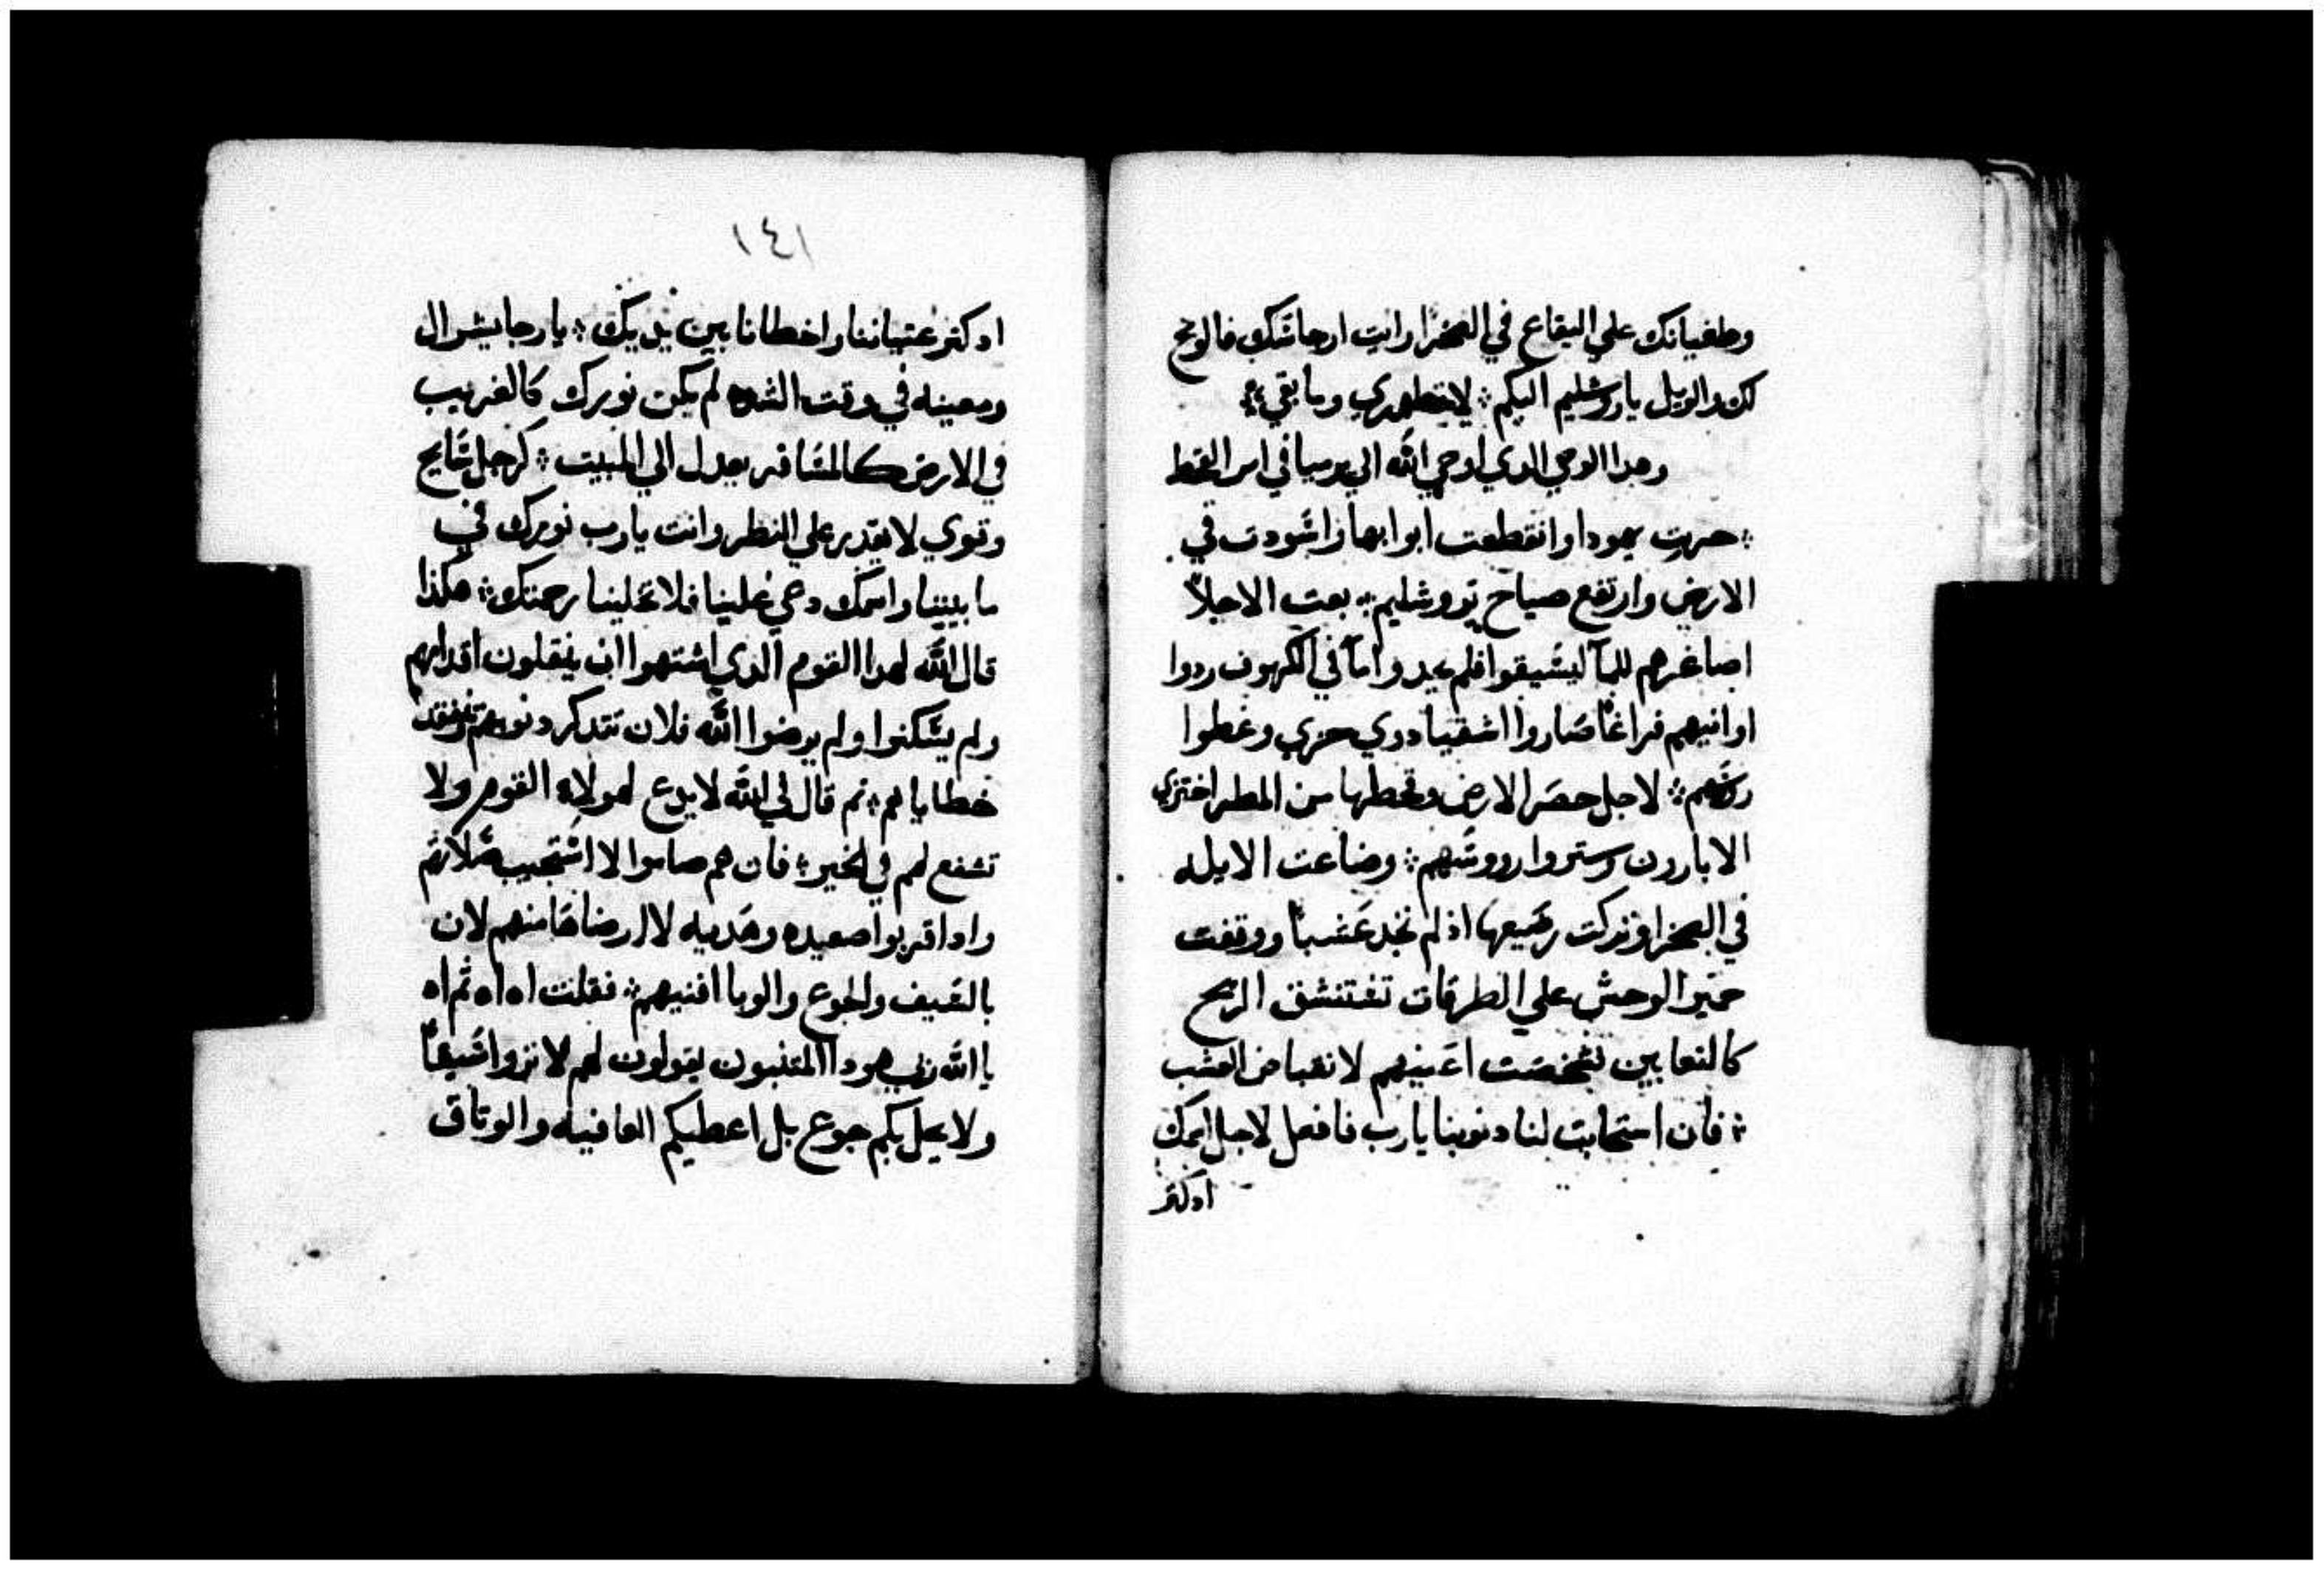 وطغيانك علي البقاع في الصخرا رايت ارجاسك فالويح
لك والويل يا روشليم اليكم ؞ لا يتطهري وما بقي ؞
وهدا الوحي الدي اوحي الله الي يرميا في امر القحط
؞ حربت يهودا وانقطعت ابوابها واسودت في
الارض وارتفع صياح يوروشليم ؞ بعت الاجلاّ
اصاغرهم للمآ ليسيقوا فلم يجدوا مآ في الكهوف ردوا
اوانيهم فراغاً صاروا اشقيا دوي خزي وغطوا
روسهم ؞ لاجل حصر الارض وقحطها من المطر اختزي
الابارون وستروا رووسهم ؞ وضاعت الايله
في الصخرا وتركت رضيعها اذ لم تجد عشباً ووقفت
حمير الوحش علي الطرقات تستنشق الريح
كالتعابين شخصت اعينهم لانقباض العشب
؞ فان استجابت لنا دنوبنا يارب فافعل لاجل اسمك
ادكتر
١٤١
ادكتر عتياننا واخطانا بين يديك ؞ يا رجا يسرال
ومعينه في وقت الشده لم يكن نورك كالغريب
في الارض كالمسافر يعدل الي المبيت ؞ كرجل سايح
وقوي لا يقدر علي النظر وانت يارب نورك في
ما بيننا واسمك دعي علينا فلا تخلينا رحمتك ؞ هكذا
قال الله لهدا القوم الدي اشتهوا ان ينقلون اقدامهم
ولم يسكنوا ولم يرضوا الله فلان تتدكر دنوبهم وتفتقد
خطاياهم ؞ تم قال لي الله لا يدع لهولاء القوم ولا
تشفع لهم في الخير ؞ فان هم صاموا لا استجيب صلاتهم
وادا قربوا صعيده وهديه لا ارضاها منهم لان
بالسيف والجوع والوبا افنيهم ؞ فقلت اه اه ثم اه
يا الله رب هودا المتنبون يقولون لهم لا تروا سيفاً
ولا يحل بكم جوع بل اعطيكم العافيه والوتاق